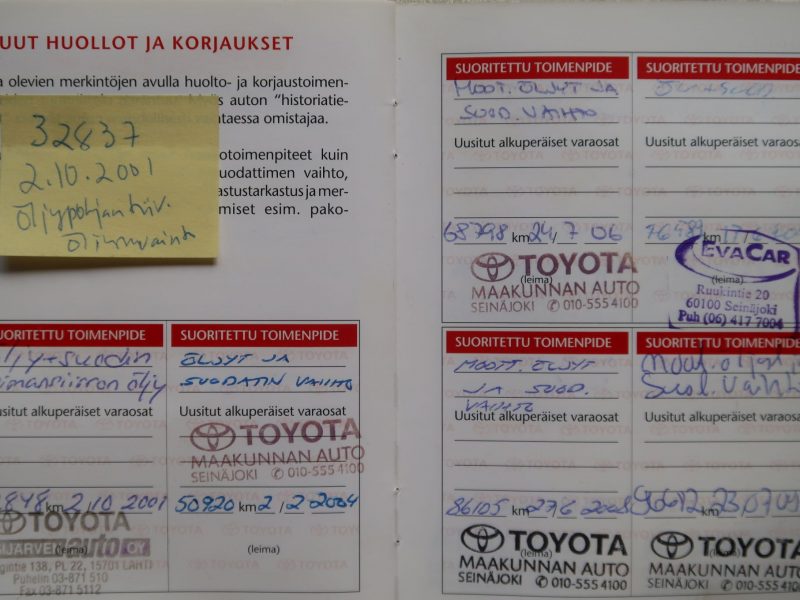 UUT HUOLLOT JA KORJAUKSET
a olevien merkintöjen avulla huolto- ja korjaustoimen-
auton "historiatie-
taessa omistajaa.
otoimenpiteet kuin
uodattimen vaihto,
astustarkastus ja mer-
miset esim. pako-
32837
2.10.2001
öljypohjan tiiv.
öljynvaihto
SUORITETTU TOIMENPIDE
öljy+suodin
öljy
Uusitut alkuperäiset varaosat
848 km 2.10 2001
TOYOTA
SIJÄRVEN auto OY
(leima)
gintie 138, PL 22, 15701 LAHTI
Puhelin 03-871 510
Fax 03-871 5112
SUORITETTU TOIMENPIDE
ÖLJYT JA
SUODATIN VAIHTO
Uusitut alkuperäiset varaosat
TOYOTA
MAAKUNNAN AUTO
SEINÄJOKI ✆ 010-555 4100
50920 km 2/2 2004
(leima)
SUORITETTU TOIMENPIDE
MOOT. ÖLJYT JA
SUOD. VAIHTO
Uusitut alkuperäiset varaosat
68798 km 24/7 06
TOYOTA
(leima)
MAAKUNNAN AUTO
SEINÄJOKI ✆ 010-555 4100
SUORITETTU TOIMENPIDE
Uusitut alkuperäiset varaosat
km
EVACAR
(leima)
Ruukintie 20
60100 Seinäjoki
Puh (06) 417 7004
SUORITETTU TOIMENPIDE
MOOTT. ÖLJYT
JA SUOD.
VAIHTO
Uusitut alkuperäiset varaosat
86105 km 27/6 2008
TOYOTA
(leima)
MAAKUNNAN AUTO
SEINÄJOKI ✆ 010-555 4100
SUORITETTU TOIMENPIDE
Suod. vaihto
Uusitut alkuperäiset varaosat
96612 km 23/07 09
TOYOTA
(leima)
MAAKUNNAN AUTO
SEINÄJOKI ✆ 010-555 4100